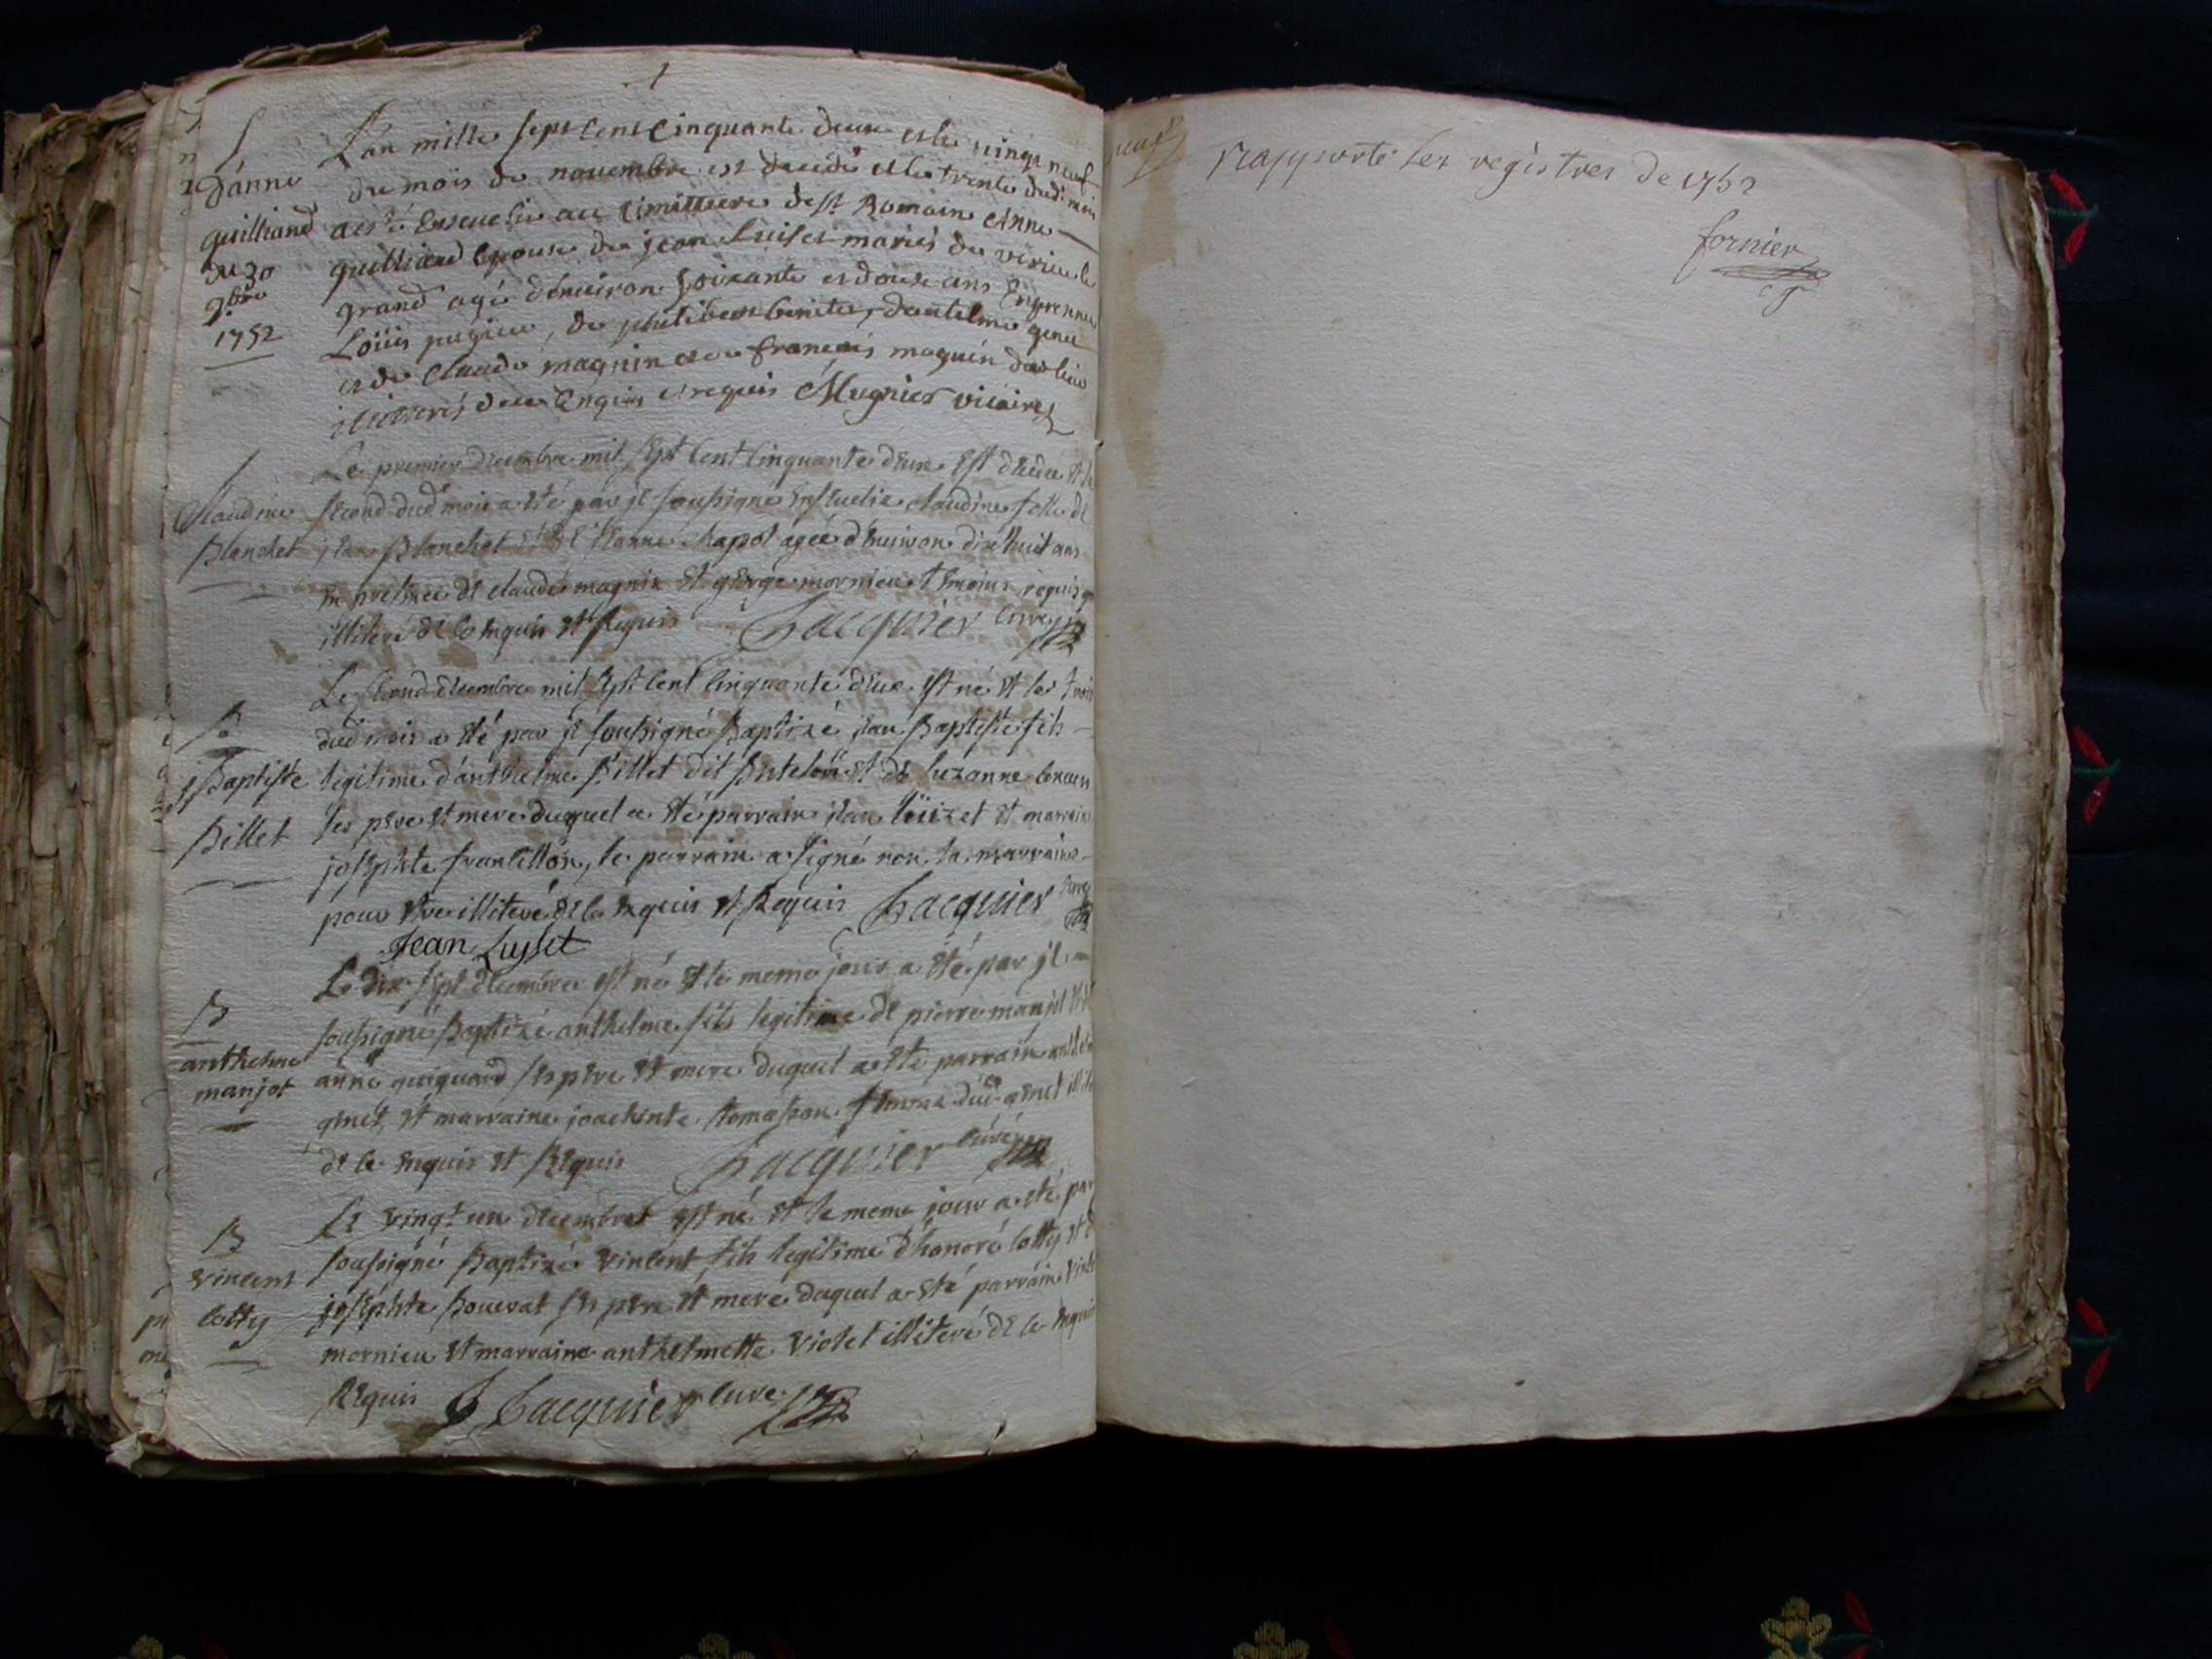 S
d'anne
quilliand
du 30
9bre
1752
L'an mille sept cent cinquante deux et le vingt neuf
du mois de novembre est decedé et le trente dudit mois
a esté Ensevelie au cimittiere de st Romain Anne
quilliand Epouse de jean Luiset mariés de virieu le
grand agée d'environ soixante et douze ans En presence
Loüis pugieu, de philibert, d'antelme genet
et de claude magnin et de francois magnin dud lieu
illitterés de ce Enquis et requis Mugnier vicaire
Claudine
Blanchet
Le premier decembre mil sept cent cinquante deux est decedée et le
second dud mois a été par je soussigné ensevelie claudine fille de
jean Blanchet et d'Etiennne chapot agée d'environ dix huit ans
en presence de claude magnin et george mornieu temoins requis
illiteré de ce enquis et requis Jacquier curé
B
j Baptiste
Billet
Le second decembre mil sept cent cinquante deux est né et le trois
dud mois a été par je soussigné Baptizé jean Baptiste fils
legitime d'anthelme Billet dit et de suzanne
ses pere et mere duquel a été parrain jean lüizet et marraine
josephte francillon, le parrain a signé non la marraine
pour etre illiteré de ce enquis et Requis Jacquier curé
Jean Luyset
B
anthelme
manjot
Le dix sept decembre est né et le meme jour a été par je
soussigné Baptizé anthelme fils legitime de pierre manjot et
anne guiguard ses pere et mere duquel a été parrain
genet, et marraine joachinte tomasson femme dud genet
de ce enquis et Requis Jacquier curé
B
vincent
cotty
Le vingt un decembre est né et le meme jour a été par
soussigné Baptizé vincent fils legitime d'honoré cotty et
josephte Bouvrat ses pere et mere duquel a été parrain
mornieu et marraine anthelmette violet illiteré de ce enquis
Requis J Jacquier curé
Rapporté les registres de 1752
fornier